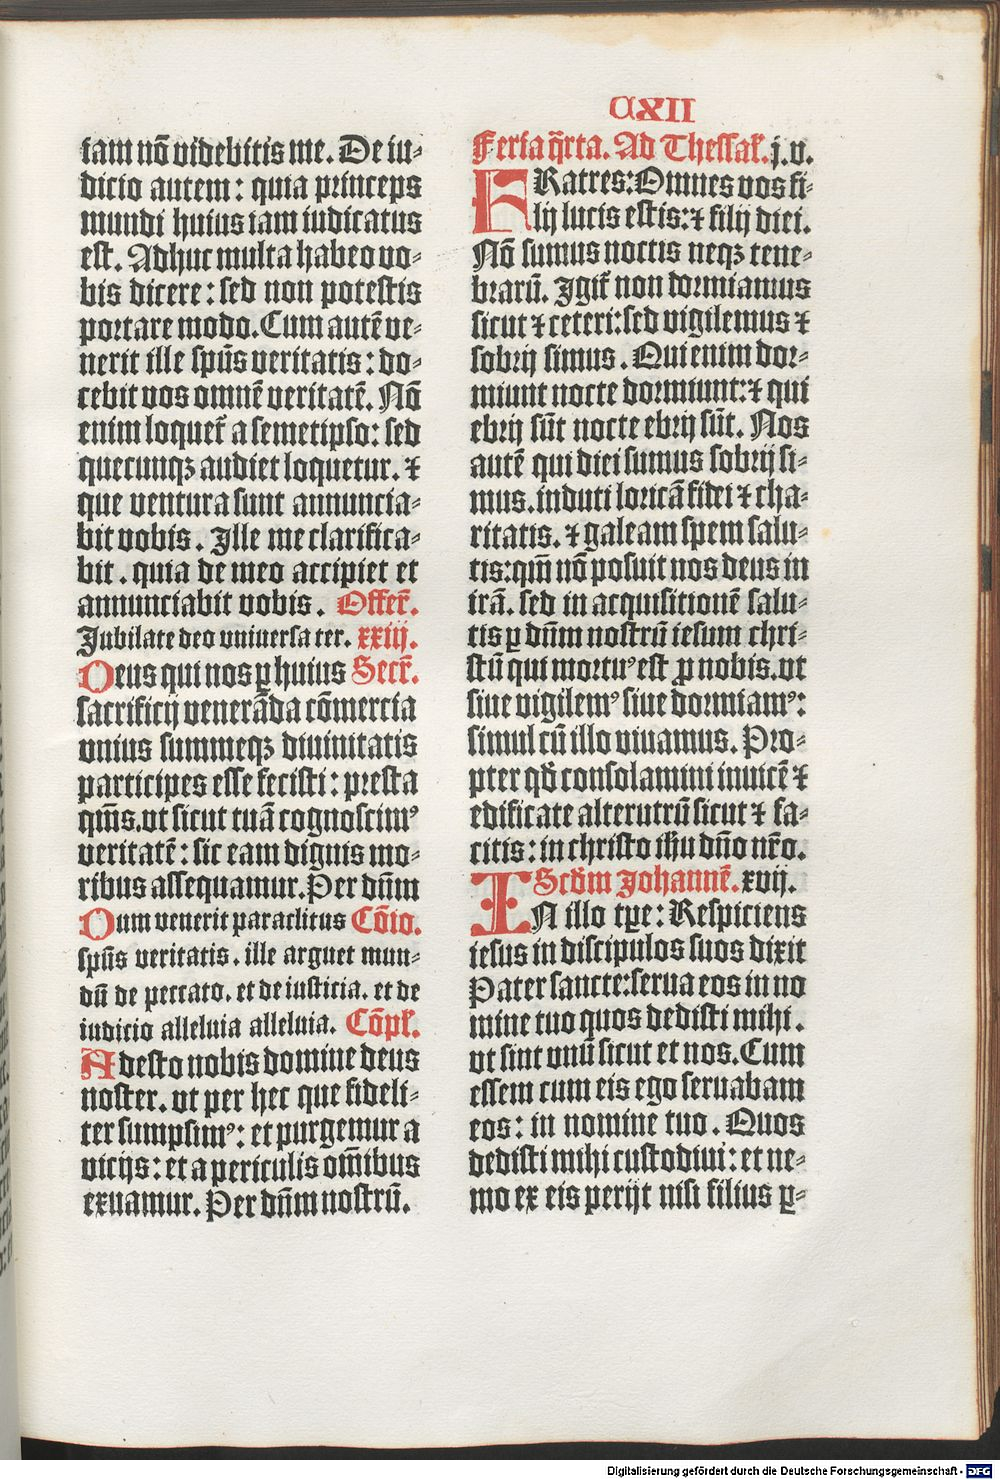 CXII
iam nõ videbitis me. De iu⸗
dicio autem: quia princeps
mundi huius iam iudicatus
est. Adhuc multa habeo vo⸗
bis dicere: sed non potestis
portare modo. Cum autẽ ve⸗
nerit ille spũs veritatis: do⸗
cebit vos omnẽ veritatẽ. Nõ
enim loquet᷑ a semetipso: sed
quecunqꝫ audiet loquetur. ⁊
que ventura sunt annuncia⸗
bit vobis. Ille me clarifica⸗
bit. quia de meo accipiet et
annunciabit vobis. Offer̃.
Iubilate deo vniuersa ter. xxiij.
Deus qui nos ꝑ huius Secr̃.
sacrificij venerãda cõmercia
vnius summeqꝫ diuinitatis
participes esse fecisti: presta
qm̃s. vt sicut tuã cognoscimꝰ
veritatẽ: sic eam dignis mo⸗
ribus assequamur. Per dñm
Dum venerit paraclitus Cõio.
spũs veritatis. ille arguet mun⸗
dũ de peccato. et de iusticia. et de
iudicio alleluia alleluia. Cõpl̃.
Adesto nobis domine deus
noster. vt per hec que fideli⸗
ter sumpsimꝰ: et purgemur a
vicijs: et a periculis om̃ibus
exuamur. Per dñm nostrũ.
Feria q̃rta. Ad Thessal̃. j. v.
FRatres: Omnes vos fi⸗
lij lucis estis: ⁊ filij diei.
Nõ sumus noctis neqꝫ tene⸗
brarũ. Igit᷑ non dormiamus
sicut ⁊ ceteri: sed vigilemus ⁊
sobrij simus. Qui enim dor⸗
miunt nocte dormiunt: ⁊ qui
ebrij sũt nocte ebrij sũt. Nos
autẽ qui diei sumus sobrij si⸗
mus. induti loricã fidei ⁊ cha⸗
ritatis. ⁊ galeam spem salu⸗
tis: qm̃ nõ posuit nos deus in
irã. sed in acquisitionẽ salu⸗
tis ꝑ dñm nostrũ iesum chri⸗
stũ qui mortuꝰ est ꝓ nobis. vt
siue vigilemꝰ siue dormiamꝰ:
simul cũ illo viuamus. Pro⸗
pter qđ consolamini inuicẽ ⁊
edificate alterutrũ sicut ⁊ fa⸗
citis: in christo ihũ dño nr̃o.
Scđm Johannẽ. xvij.
IN illo tꝑe: Respiciens
iesus in discipulos suos dixit
Pater sancte: serua eos in no
mine tuo quos dedisti mihi.
vt sint vnũ sicut et nos. Cum
essem cum eis ego seruabam
eos: in nomine tuo. Quos
dedisti mihi custodiui: et ne⸗
mo ex eis perijt nisi filius ꝑ⸗
Digitalisierung gefördert durch die Deutsche Forschungsgemeinschaft - DFG